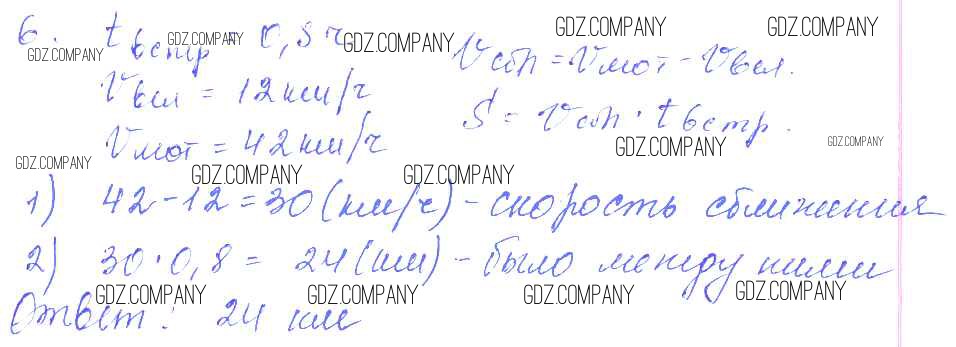 6. t встр = 0,8 ч
Vсбл = Vмот - Vвел.
Vвел = 12 км/ч
S = Vсбл · t встр.
Vмот = 42 км/ч
1) 42 - 12 = 30 (км/ч) - скорость сближения
2) 30 · 0,8 = 24 (км) - было между ними
Ответ: 24 км
GDZ.COMPANY
GDZ.COMPANY
GDZ.COMPANY
GDZ.COMPANY
GDZ.COMPANY
GDZ.COMPANY
GDZ.COMPANY
GDZ.COMPANY
GDZ.COMPANY
GDZ.COMPANY
GDZ.COMPANY
GDZ.COMPANY
GDZ.COMPANY
GDZ.COMPANY